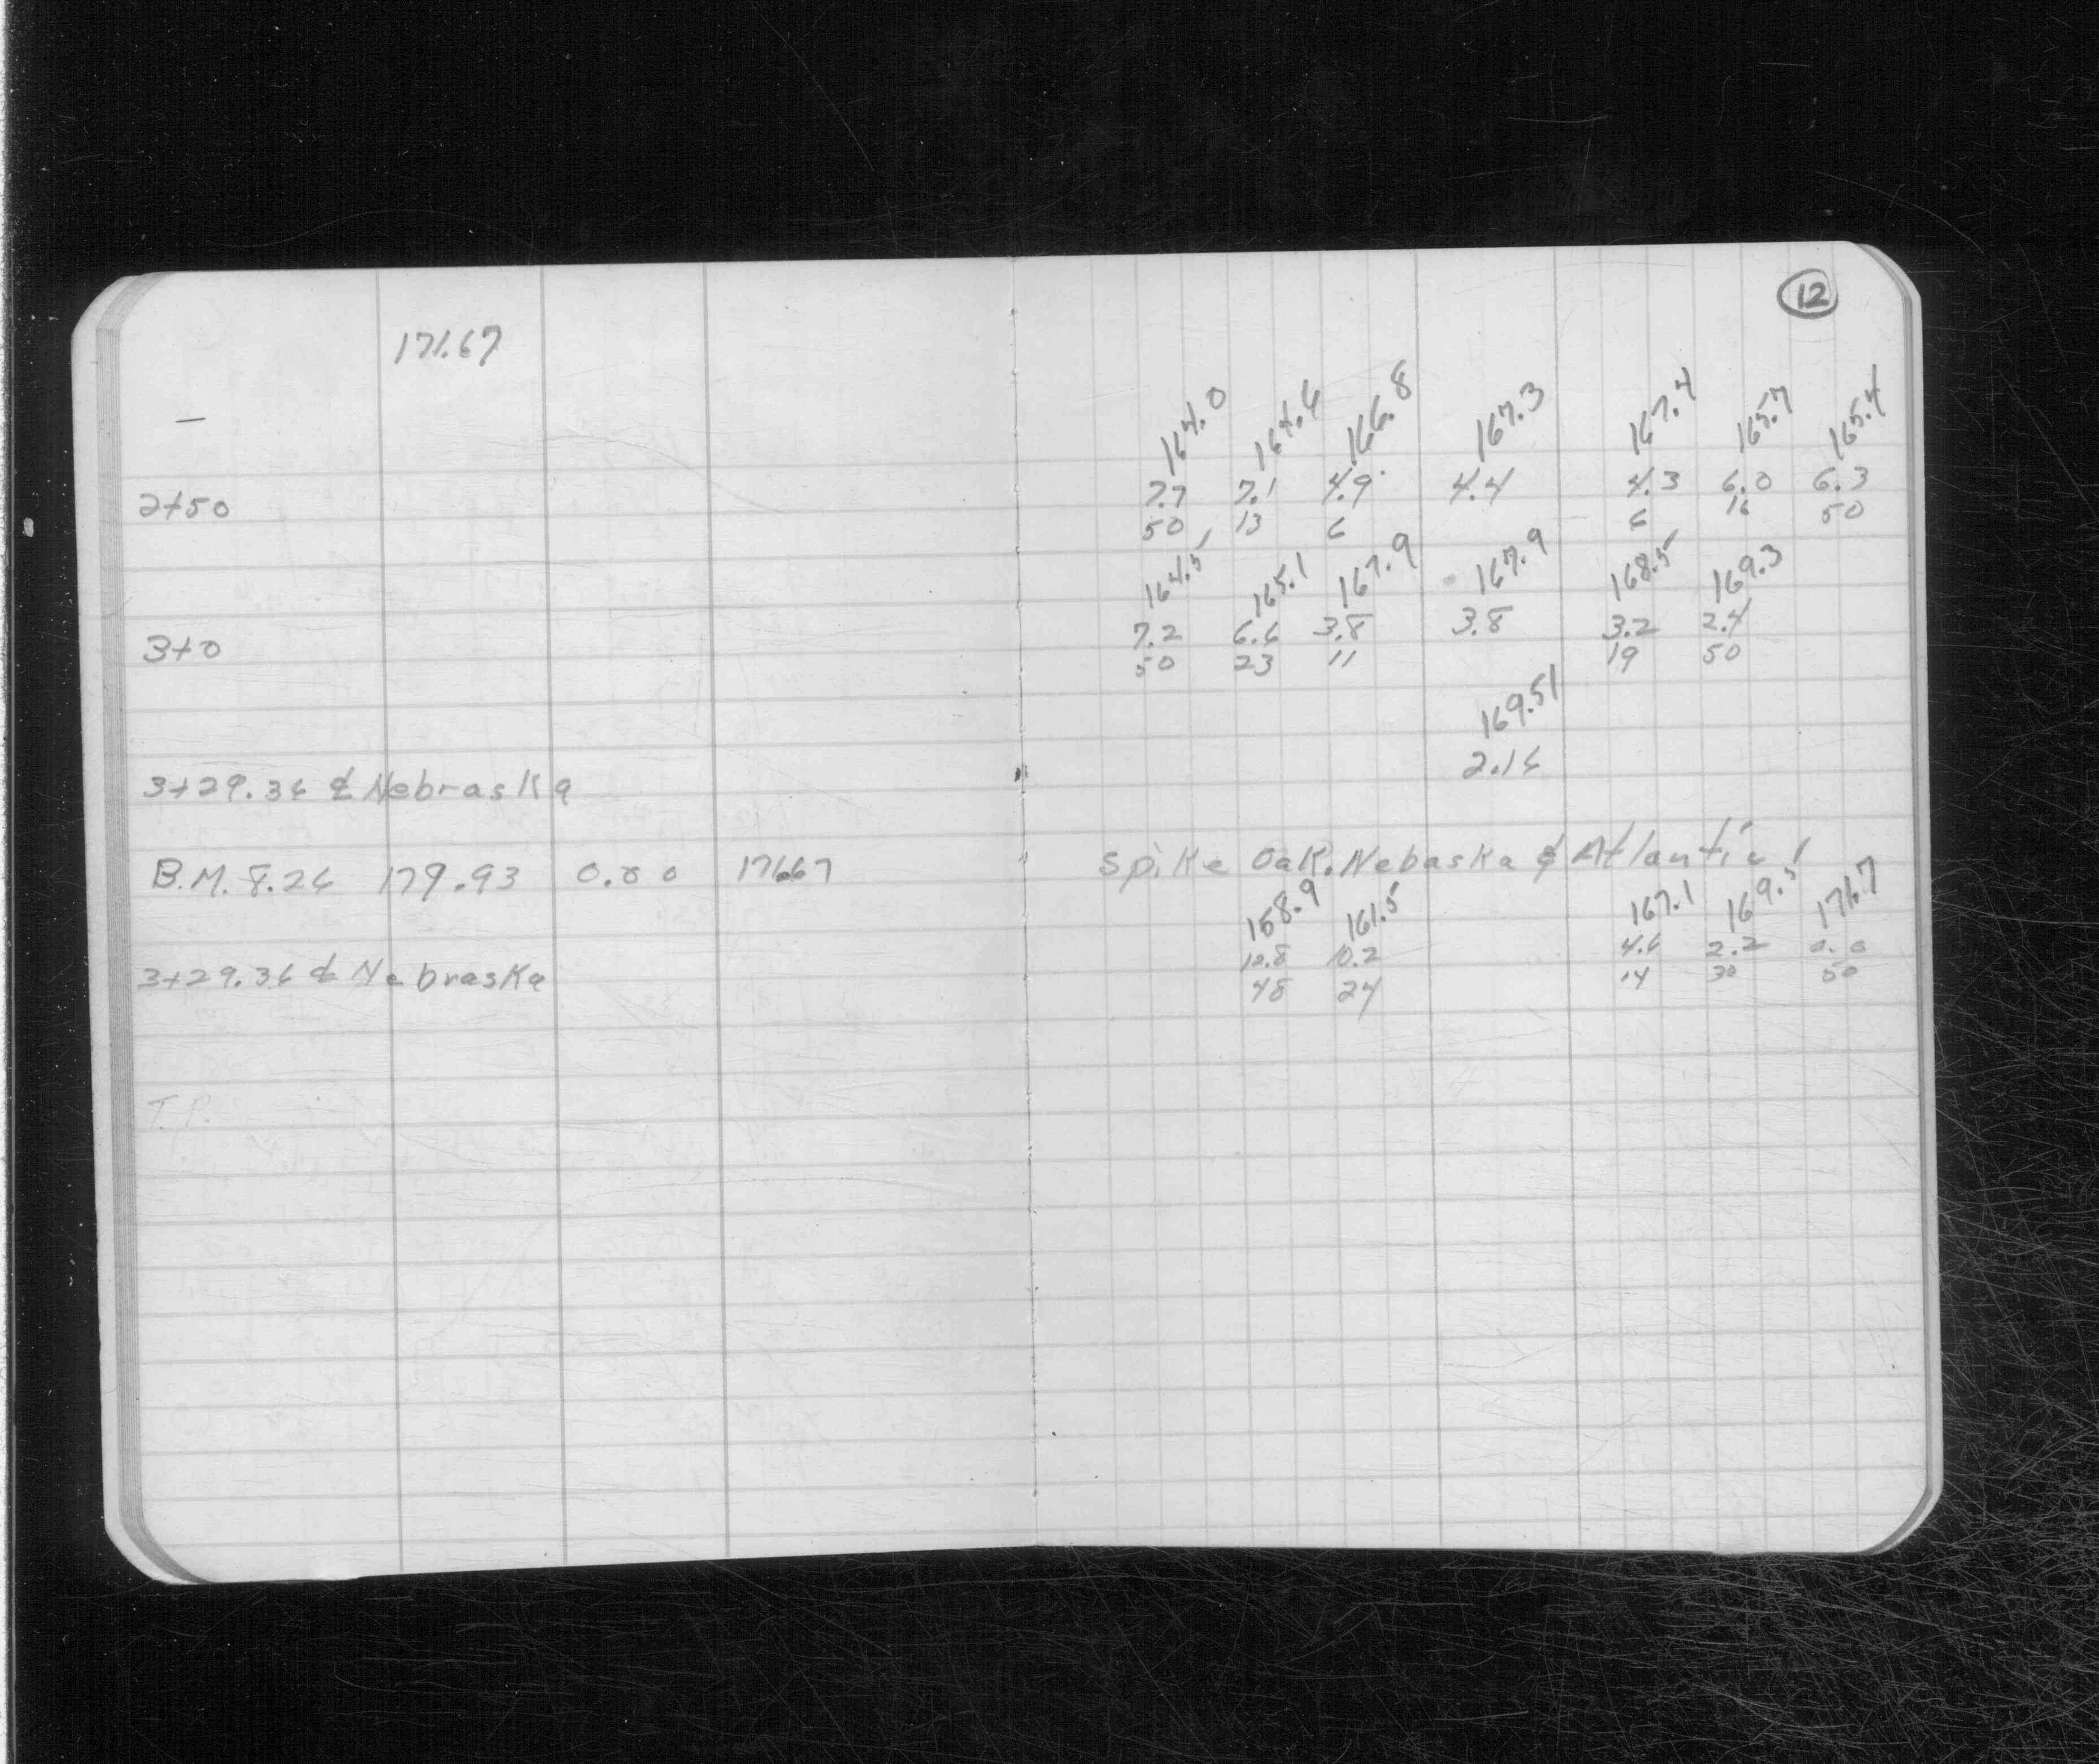 12
171.67
—
164.0 164.6 166.8 167.3 167.4 165.7 165.4
2+50 7.7 7.1 4.9 4.4 4.3 6.0 6.3
50 13 6 6 16 50
164.5 165.1 167.9 167.9 168.5 169.3
3+0 7.2 6.6 3.8 3.8 3.2 2.4
50 23 11 19 50
169.51
3+29.36 ℄ Nebraska 2.16
B.M. 8.26 179.93 0.00 171.67 Spike Oak. Nebaska & Atlantic
158.9 161.5 167.1 169.5 171.7
12.8 10.2 4.6 2.2 0.0
3+29.36 ℄ Nebraska 48 24 14 30 50
T.P.